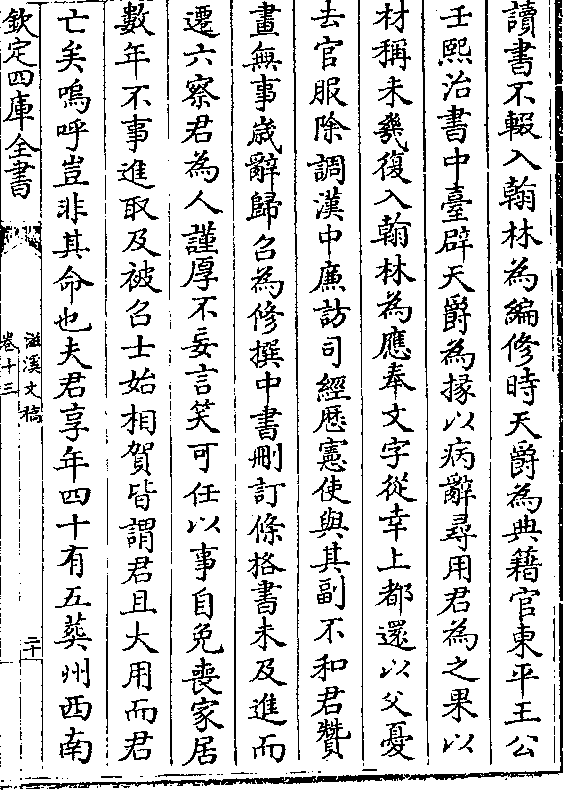 讀書不輟入翰林為編修時天爵為典籍官東平王公
壬熙治書中臺辟天爵為掾以病辭尋用君為之果以
材稱未幾復入翰林為應奉文字從幸上都還以父憂
去官服除調漢中廉訪司經歴憲使與其副不和君贊
畫無事嵗辭歸召為修撰中書刪訂條格書未及進而
遷六察君為人謹厚不妄言笑可任以事自免喪家居
數年不事進取及被召士始相賀皆謂君且大用而君
亡矣嗚呼豈非其命也夫君享年四十有五葬州西南
欽定四庫全書
滋溪文稿
卷十三
二十